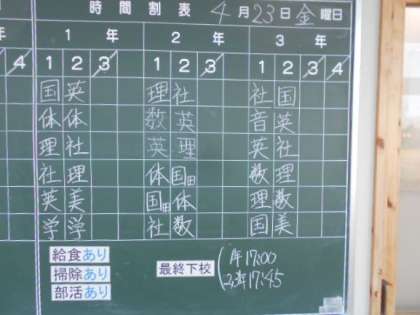 時間割表 4月23日金曜日
1年 2年 3年
4 1 2 3 1 2 3 4 1 2 3 4
国 英 理 社 社 国
体 体 数 英 音 英
理 社 英 理 英 社
社 理 体 国田 数 理
英 美 国田 体 理 数
学 学 社 数 国 美
給食あり
掃除あり
部活あり
最終下校
1年17:00
2,3年17:45